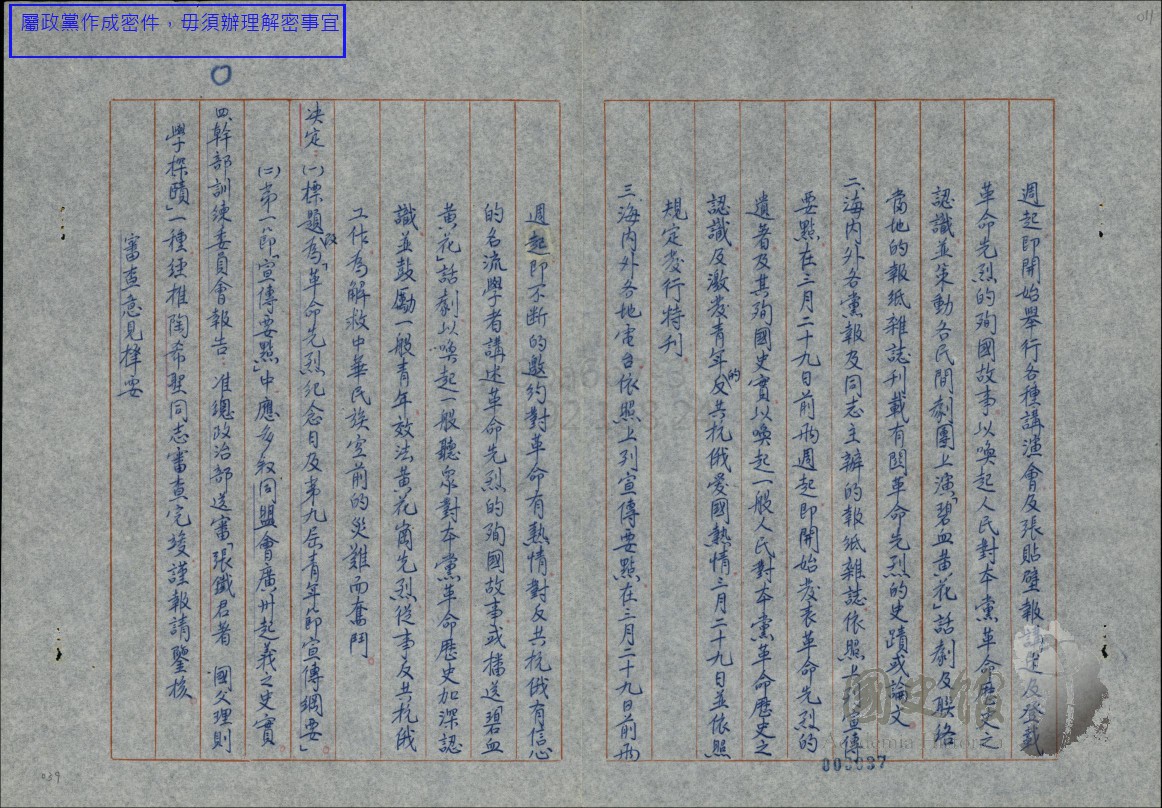 屬政黨作成密件，毋須辦理解密事宜
週起即開始舉行各種講演會及張貼壁報及登載
革命先烈的殉國故事以喚起人民對本黨革命歷史之
認識並策動各民間劇團上演「碧血黃花」話劇及聯絡
當地的報紙雜誌刊載有關革命先烈的史蹟或論文
二、海內外各黨報及同志主辦的報紙雜誌依照上宣傳
要點在三月二十九日前兩週起即開始發表革命先烈的
遺著及其殉國史實以喚起一般人民對本黨革命歷史之
認識及激發青年的反共抗俄愛國熱情三月二十九日並依照
規定發行特刊
三、海內外各地電台依照上列宣傳要點在三月二十九日前兩
週起即不斷的邀約對革命有熱情對反共抗俄有信心
的名流學者講述革命先烈的殉國故事或播送碧血
黃花」話劇以喚起一般聽眾對本黨革命歷史加深認
識並鼓勵一般青年效法黃花崗先烈從事反共抗俄
工作為解救中華民族空前的災難而奮鬥。
決定：(一)標題改為「革命先烈紀念日及第九屆青年節宣傳綱要」
(二)第一八節「宣傳要點」中應多敘同盟會廣州起義之史實
四、幹部訓練委員會報告：准總政治部送審「張鐵君著 國父理則
學探賾」一種經推陶希聖同志審查完竣謹報請鑒核
審查意見摘要
國史館
Academia Historica
000037
011
039